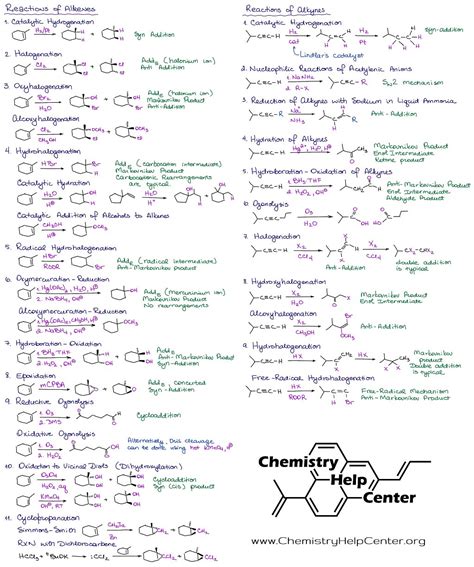 Reactions of Alkenes
1. Catalytic Hydrogenation
H₂/Pt
Syn Addition
2. Halogenation
Cl₂
Add_E (halonium ion)
Anti Addition
3. Oxyhalogenation
Br₂
H₂O
Add_E (halonium ion)
Markovnikov Product
Anti-Addition
Alcoxyhalogenation
Cl₂
CH₃OH
4. Hydrohalogenation
HBr
Add_E (carbocation intermediate)
Markovnikov Product
Carbocationic Rearrangements are typical
Catalytic Hydration
H₂O
Catalytic Addition of Alcohols to Alkenes
CH₃OH
5. Radical Hydrohalogenation
HBr
ROOR
Add_E (radical intermediate)
Anti-Markovnikov Product
6. Oxymercuration-Reduction
1. Hg(OAc)₂, H₂O, H⊕
2. NaBH₄, OH⊖
Add_E (mercurinium ion)
Markovnikov Product
No rearrangements
Alcoxymercuration-Reduction
1. Hg(OAc)₂, CH₃OH, H⊕
2. NaBH₄, OH⊖
7. Hydroboration-Oxidation
1. BH₃·THF
2. H₂O₂, OH⊖
Add_E
Anti-Markovnikov Product
Syn-Addition
8. Epoxidation
mCPBA
Add_E, concerted
Syn-Addition
9. Reductive Ozonolysis
1. O₃
2. DMS
Cycloaddition
Oxidative Ozonolysis
1. O₃
2. H₂O₂
Alternatively, this cleavage
can be done using hot KMnO₄, H⊕
10. Oxidation to Vicinal Diols (Dihydroxylation)
OsO₄
H₂O₂, aq
Cycloaddition
Syn (cis) product
KMnO₄
OH⊖, RT
11. Cyclopropanation
Simmons-Smith
CH₂I₂
Zn
RXN with Dichlorocarbene
HCCl₃ + tBuOK
:CCl₂
Reactions of Alkynes
1. Catalytic Hydrogenation
H₂
cat
H₂
Pt
Syn-addition
Lindlar's catalyst
2. Nucleophilic Reactions of Acetylenic Anions
1. NaNH₂
2. R-X
S_N2 mechanism
3. Reduction of Alkynes with Sodium in Liquid Ammonia
Na
NH₃
Anti-Addition
4. Hydration of Alkynes
Hg²⁺, H₂O, H⊕
Markovnikov Product
Enol Intermediate
Ketone product
5. Hydroboration-Oxidation of Alkynes
1. BH₃·THF
2. H₂O₂, OH⊖
Anti-Markovnikov Product
Enol Intermediate
Aldehyde Product
6. Ozonolysis
O₃
H₂O
7. Halogenation
X₂
CCl₄
X₂
CCl₄
CX₂-CHX₂
Anti-Addition
double addition
is typical
8. Hydroxyhalogenation
X₂
H₂O
Markovnikov Product
Enol Intermediate
Alcoxyhalogenation
CH₃OH
Anti-Addition
9. Hydrohalogenation
HX
HX
Markovnikov product
Double addition
is typical
Free-Radical Hydrohalogenation
HX
ROOR
Free-Radical Mechanism
Anti-Markovnikov Product
Chemistry
Help
Center
www.ChemistryHelpCenter.org